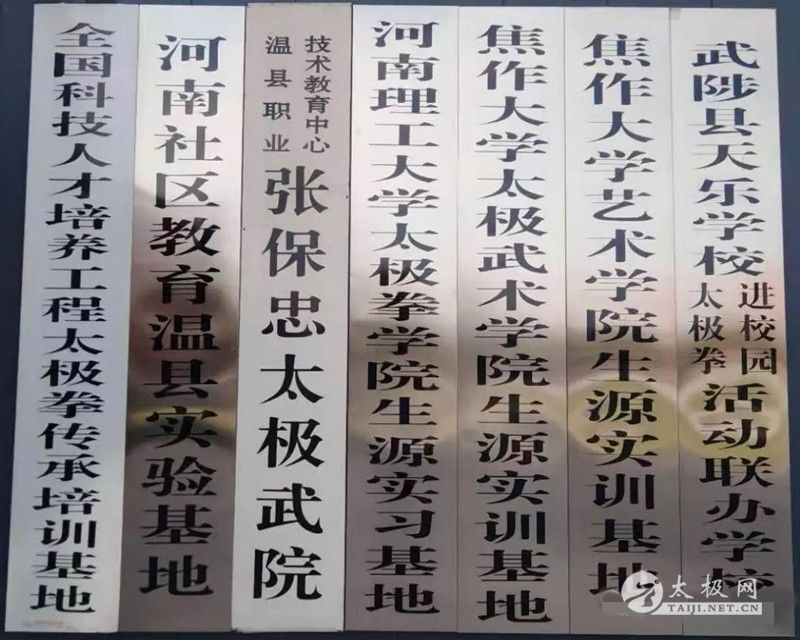 全国科技人才培养工程太极拳传承培训基地
河南社区教育温县实验基地
温县职业
技术教育中心
张保忠太极武院
河南理工大学太极拳学院生源实习基地
焦作大学太极武术学院生源实训基地
焦作大学艺术学院生源实训基地
武陟县天乐学校
太极拳
进校园
活动联办学校
太极网
TAIJI.NET.CN